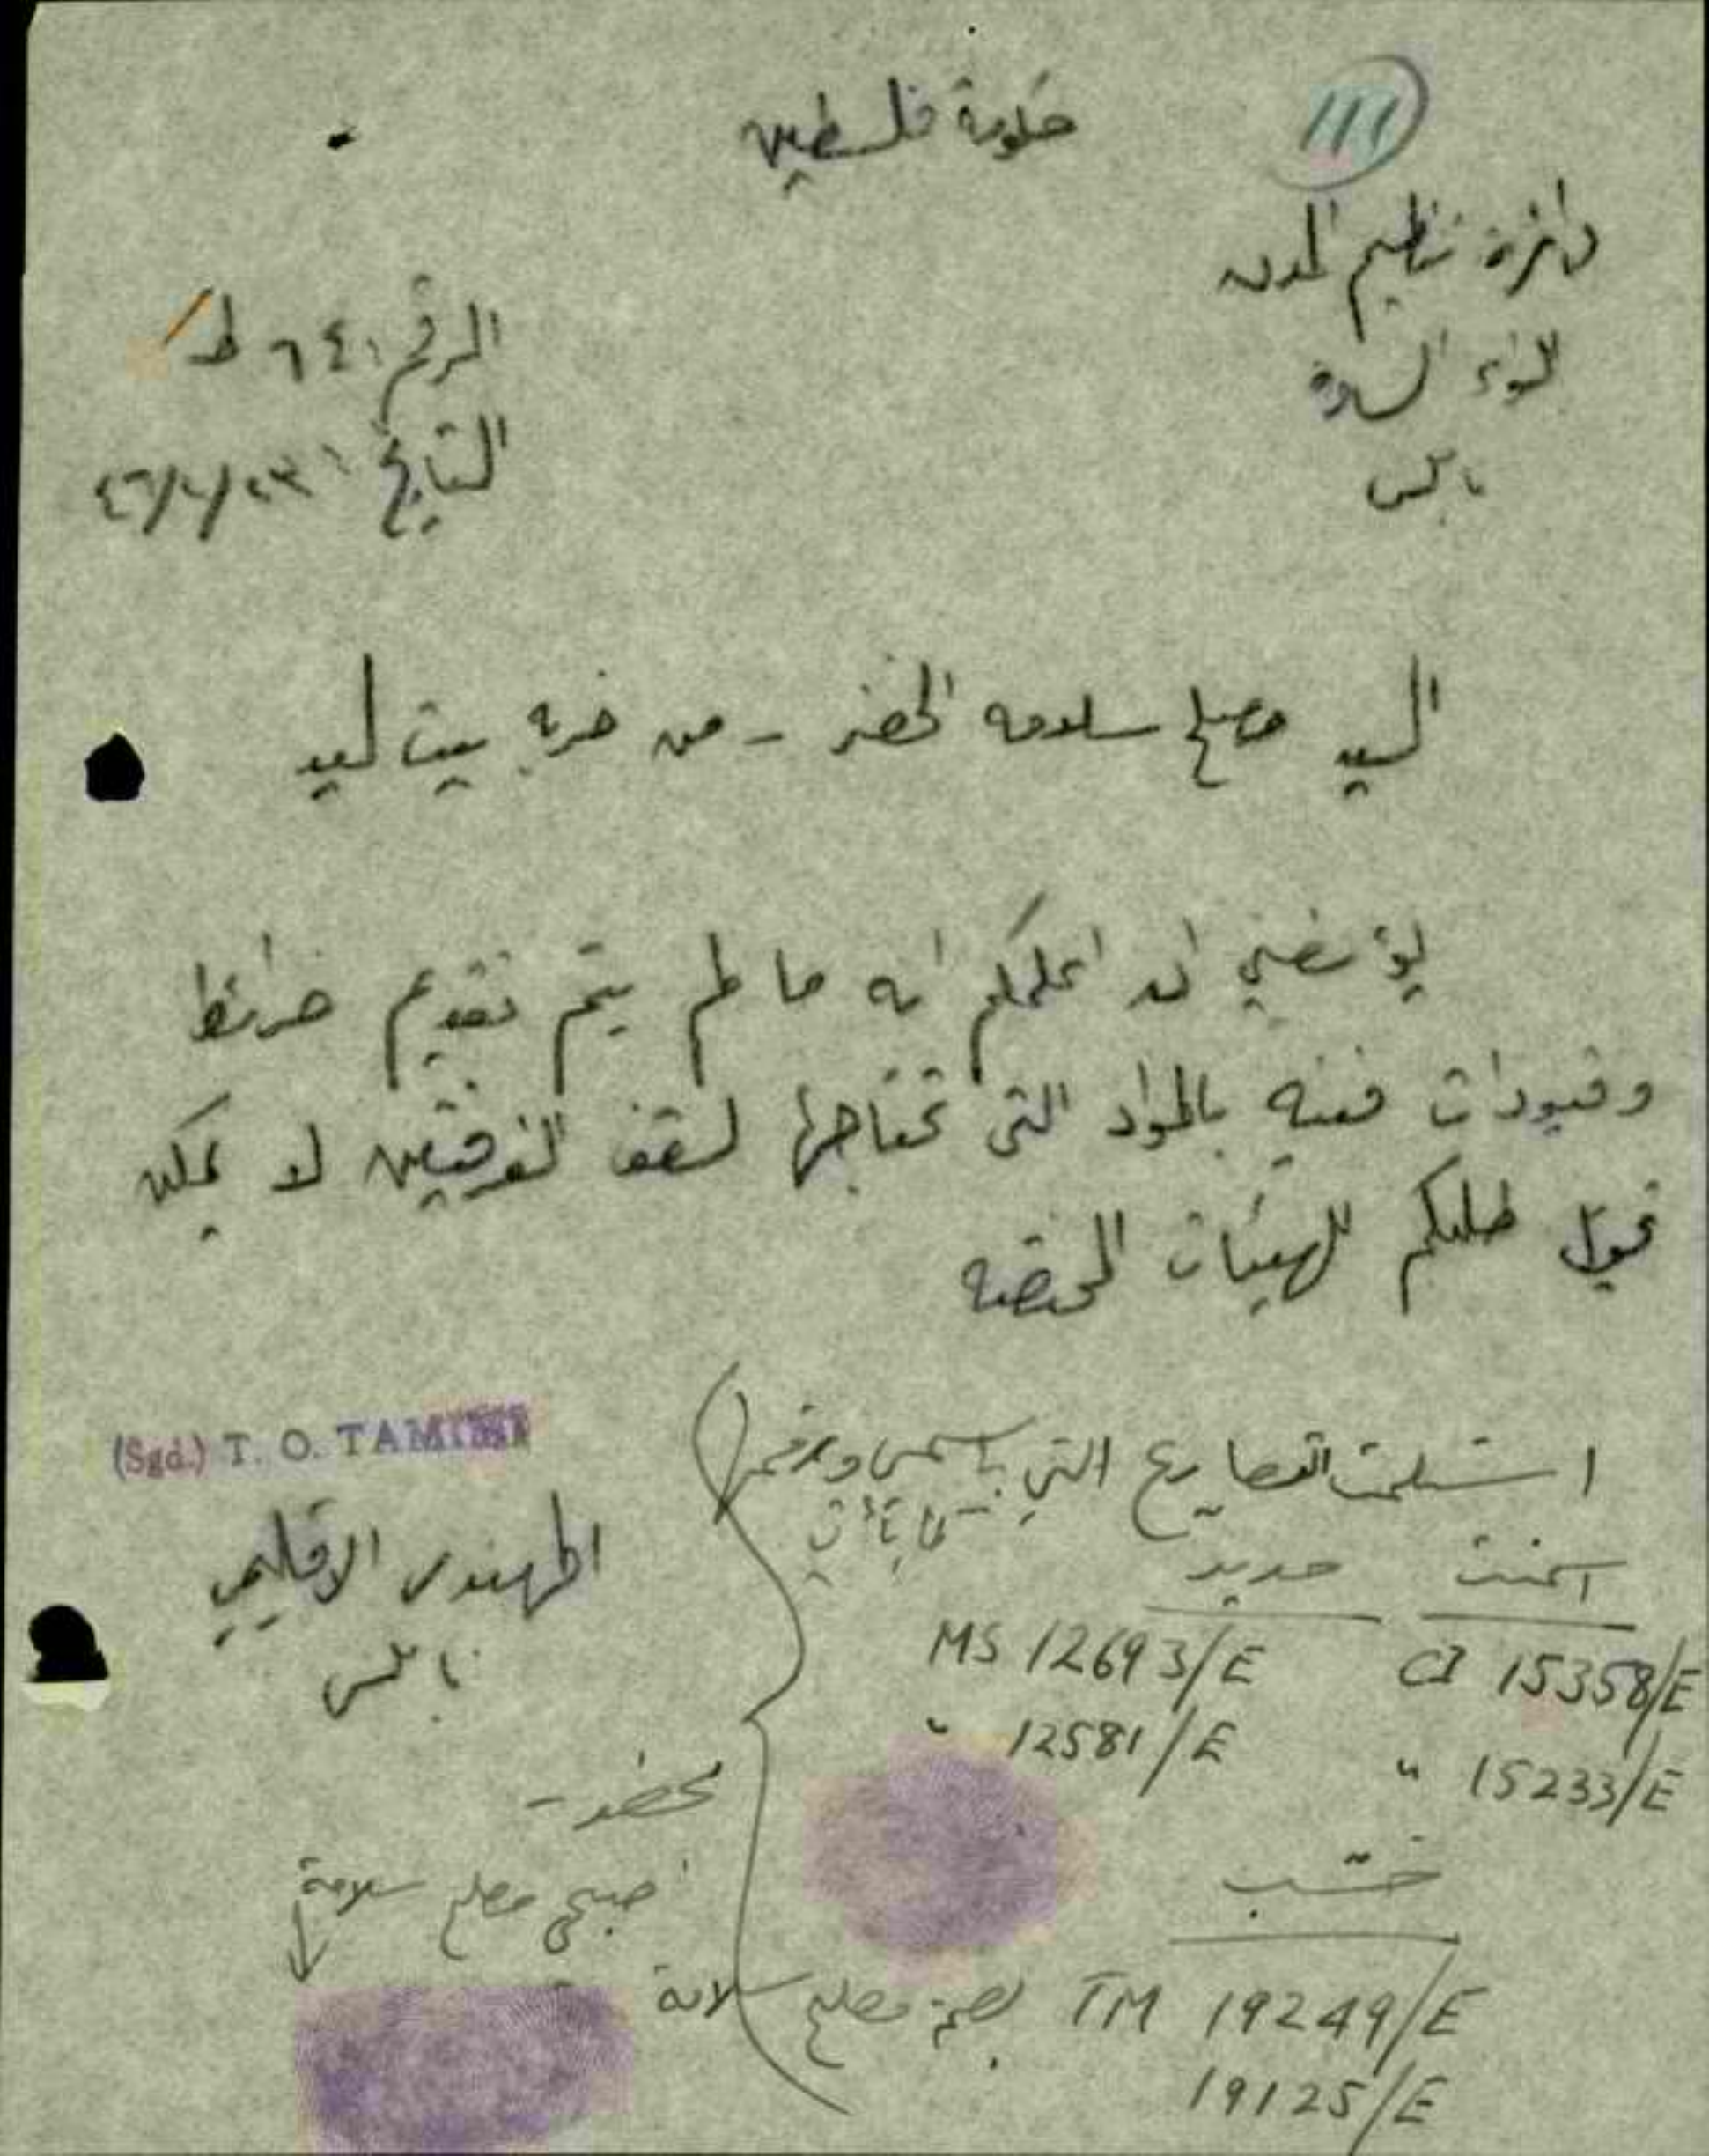 111
حكومة فلسطين
دائرة تنظيم المدن
لواء السامرة
نابلس
الرقم ٦٤١ ط/
التاريخ
السيد مصلح سلامه الخضر - من خربة بيت ليد
يؤسفني ان اعلمكم انه ما لم يتم تقديم خرائط
وقيودات فنيه بالمواد التي تحتاجها لسقف الغرفتين لا يمكن
تحويل طلبكم للهيئات المختصه
(Sgd.) T. O. TAMIMI
المهندس الاقليمي
نابلس
استلمت التصاريح التي باسمي
اسمنت حديد
CI 15358/E MS 12693/E
" 15233/E " 12581/E
خشب
TM 19249/E
19125/E
بصمة مصلح سلامة
بحضور -
صبحي مصلح سلامة